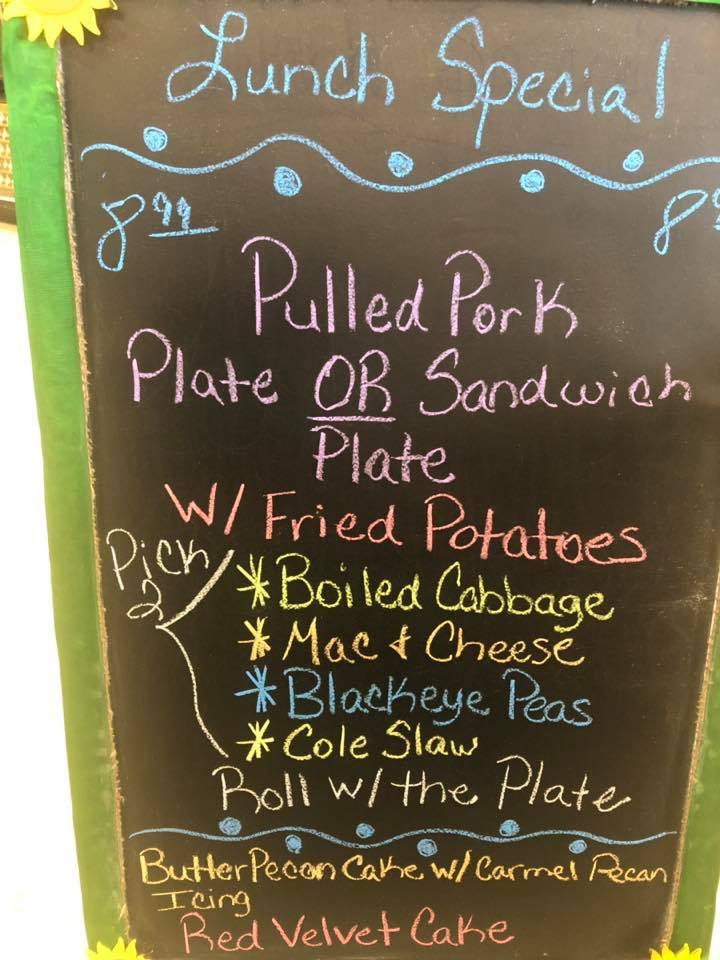 Lunch Special
8.99 8.9
Pulled Pork
Plate OR Sandwich
Plate
W/ Fried Potatoes
Pick
2
*Boiled Cabbage
*Mac & Cheese
*Blackeye Peas
*Cole Slaw
Roll w/ the Plate
Butter Pecan Cake w/ Carmel Pecan
Icing
Red Velvet Cake